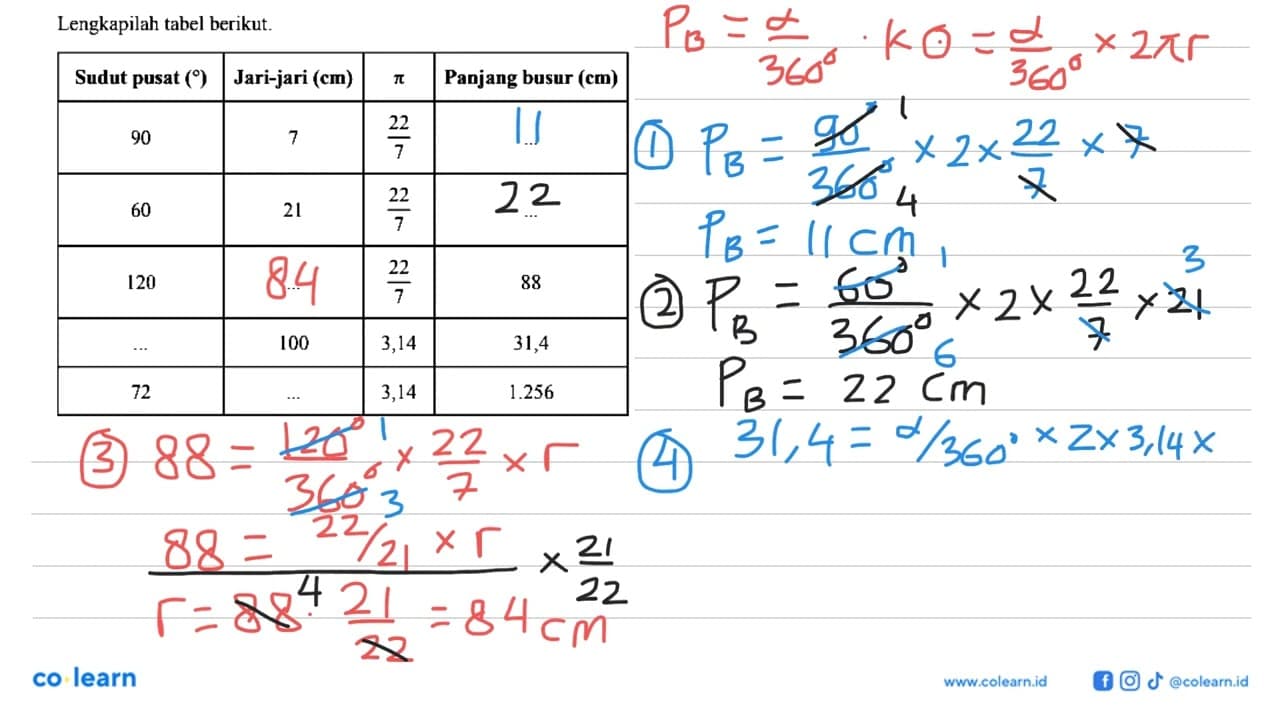 Lengkapilah tabel berikut.
Sudut pusat (°) Jari-jari (cm) π Panjang busur (cm)
90 7 22/7 ... 11
60 21 22/7 ... 22
120 ... 84 22/7 88
... 100 3,14 31,4
72 ... 3,14 1.256
P_B = α/360° . K⊙ = α/360° × 2πr
① P_B = 90/360° × 2 × 22/7 × 7
1
4
P_B = 11 cm
② P_B = 60°/360° × 2 × 22/7 × 21
1
3
6
P_B = 22 cm
③ 88 = 120°/360° × 22/7 × r
1
3
88 = 22/21 × r × 21/22
r = 88 4 . 21/22 = 84 cm
④ 31,4 = α/360° × 2 × 3,14 ×
co·learn
www.colearn.id
@colearn.id